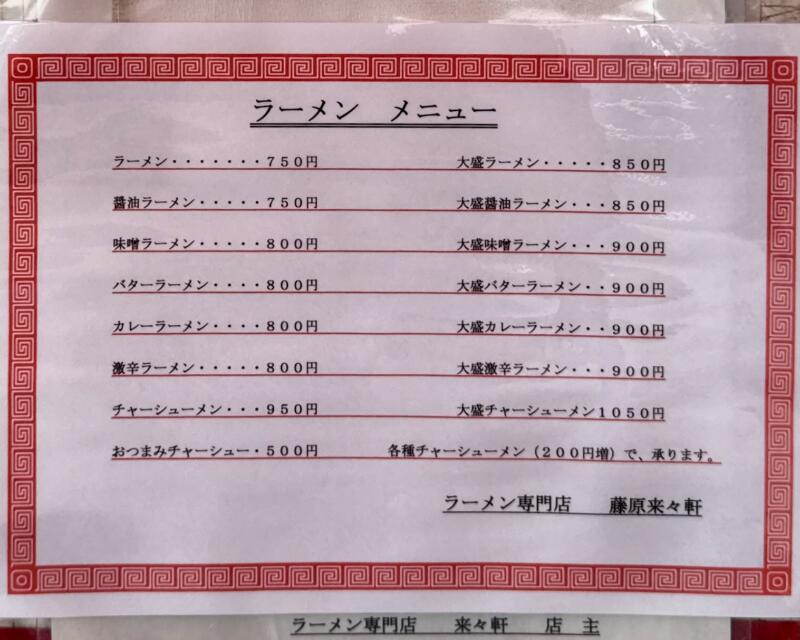 ラーメン　メニュー
ラーメン・・・・・・・７５０円　大盛ラーメン・・・・・８５０円
醤油ラーメン・・・・・７５０円　大盛醤油ラーメン・・・８５０円
味噌ラーメン・・・・・８００円　大盛味噌ラーメン・・・９００円
バターラーメン・・・・８００円　大盛バターラーメン・・９００円
カレーラーメン・・・・８００円　大盛カレーラーメン・・９００円
激辛ラーメン・・・・・８００円　大盛激辛ラーメン・・・９００円
チャーシューメン・・・９５０円　大盛チャーシューメン１０５０円
おつまみチャーシュー・５００円　各種チャーシューメン（２００円増）で、承ります。
ラーメン専門店　藤原来々軒
ラーメン専門店　来々軒　店　主